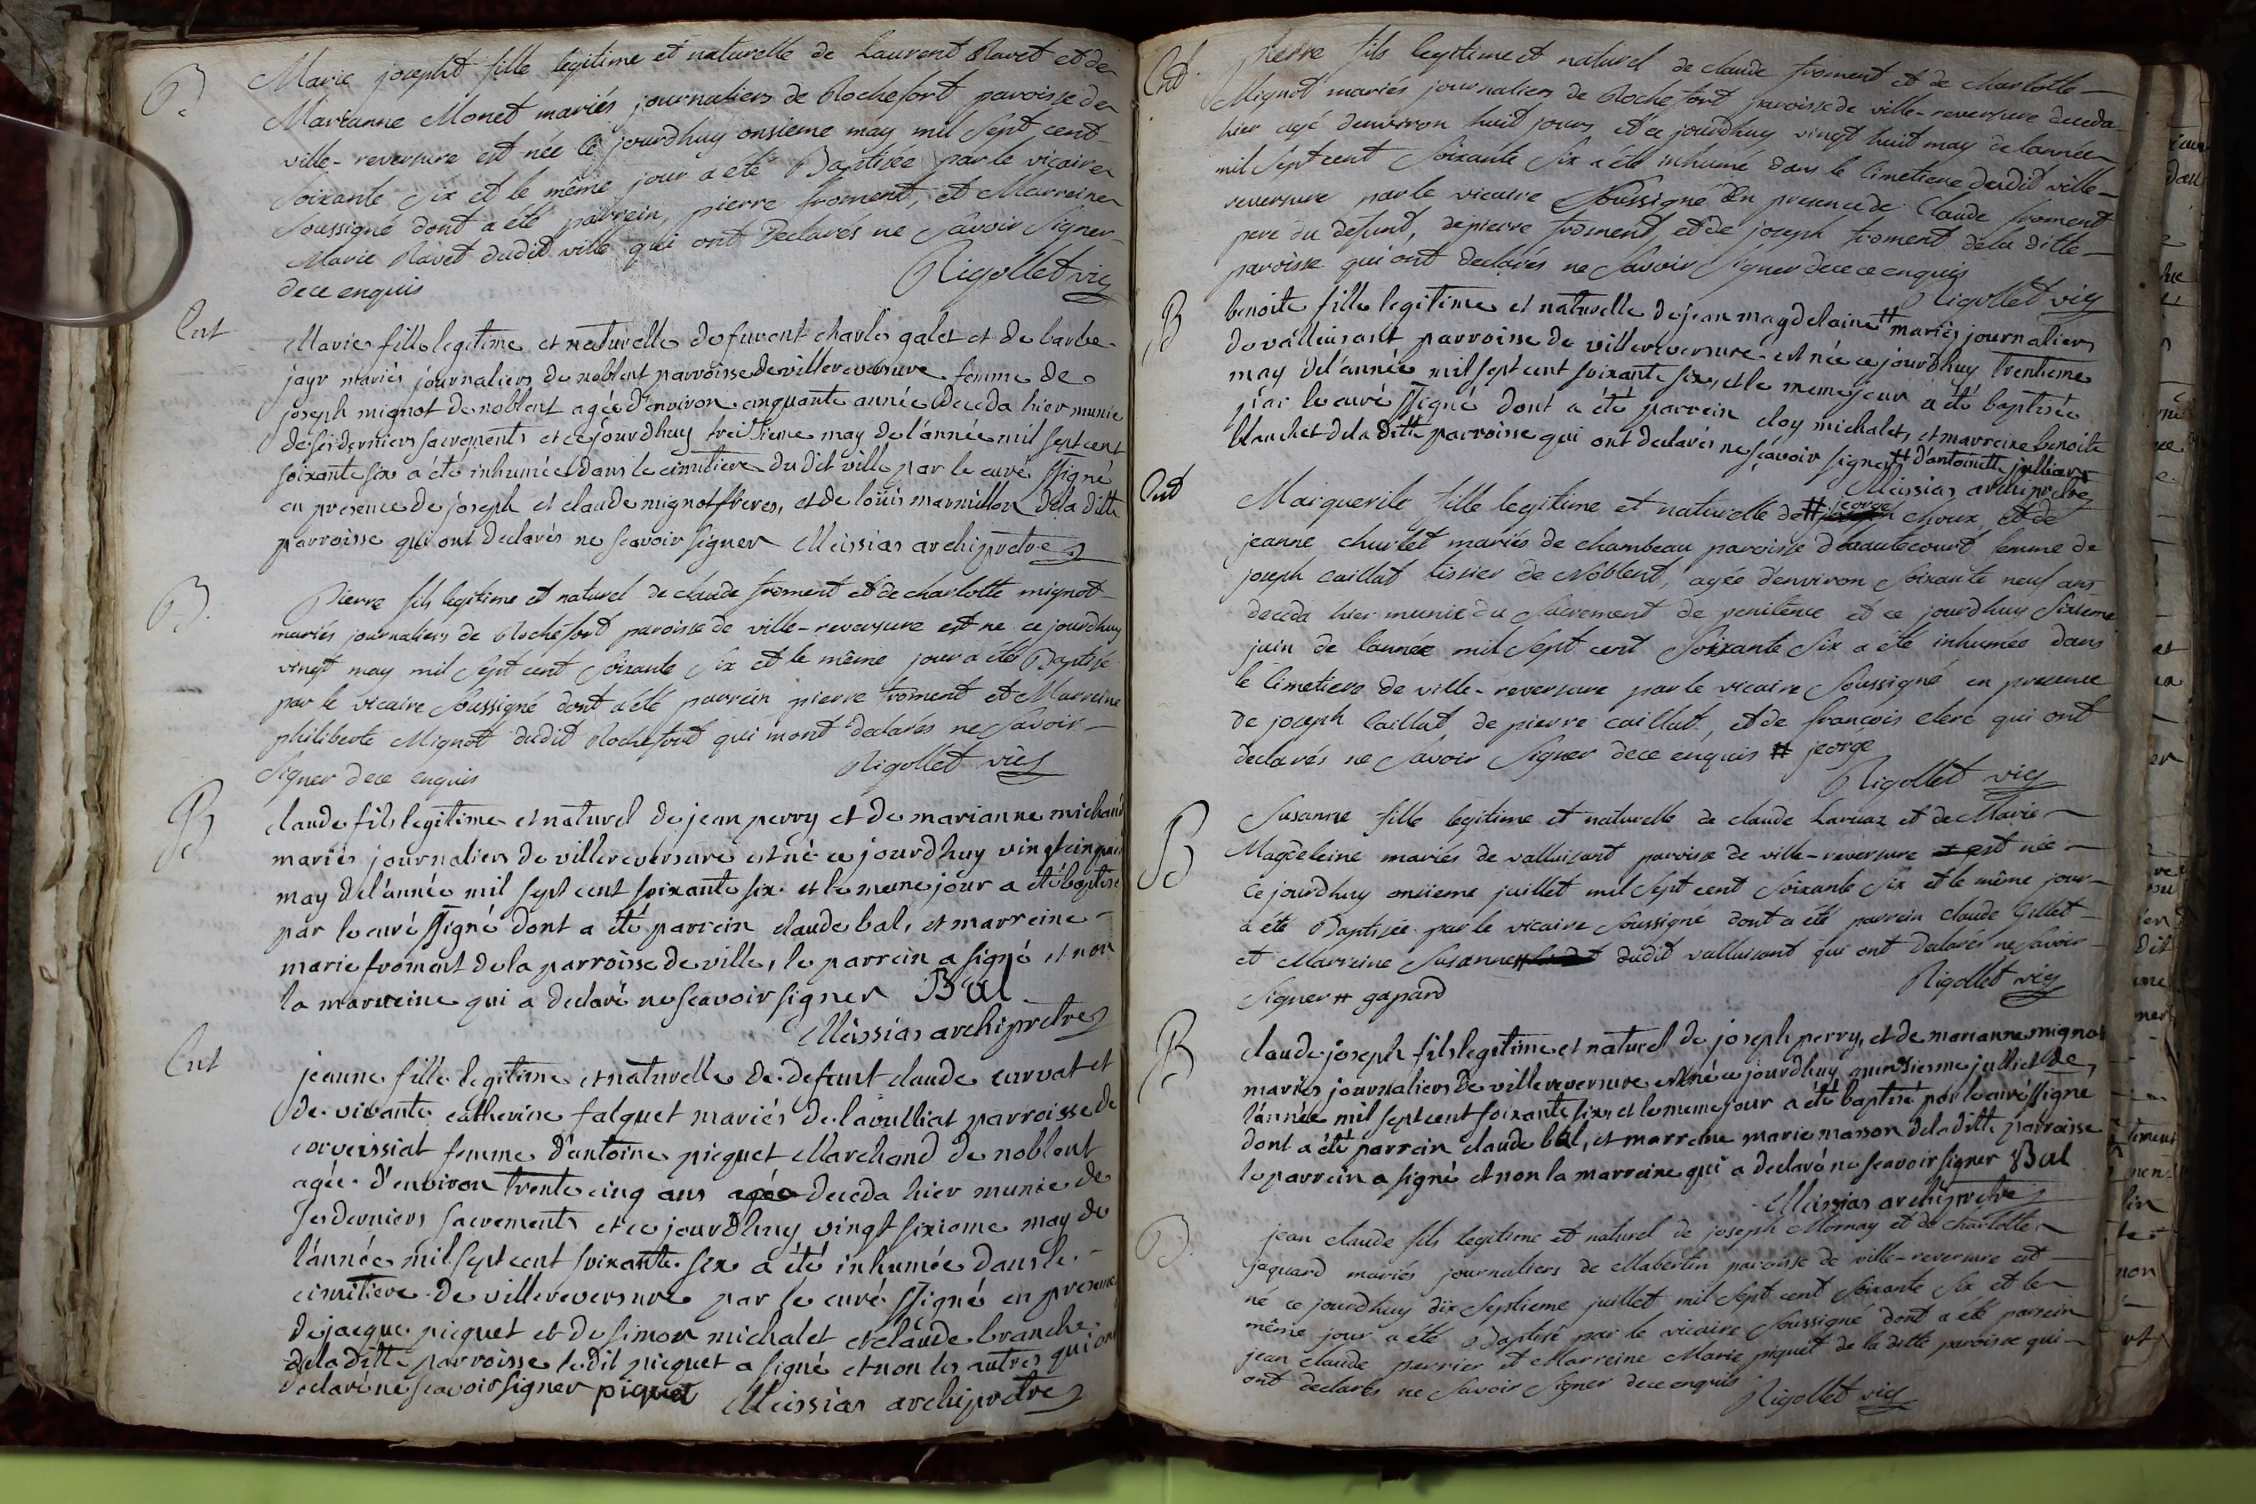 B.
Marie josepht fille legitime et naturelle de Laurent Ravet et de
Marianne Monet mariés journaliers de Rochefort paroisse de
ville-reversure est née ce jourdhuy onsieme may mil sept cent
soixante six et le même jour a eté Baptisée par le vicaire
soussigné dont a été parrein, pierre froment, et Marreine
Marie Ravet dudit ville qui ont declarés ne savoir signer
de ce enquis
Rigollet vic
Ent
Marie fille legitime et naturelle de furent charles galet et de barbe
jayr mariés journaliers de noblent parroisse de villereversure femme de
joseph mignot de noblent agée d'environ cinquante année deceda hier munie
de ses derniers sacrements et ce jourdhuy treisieme may de l'année mil sept cent
soixante six a été inhumée dans le cimitiere du dit ville par le curé ssigné
en presence de joseph et claude mignot freres, et de loüis marmillon de la ditte
parroisse qui ont declarés ne scavoir signer Meissias archipretre
B.
Pierre fils legitime et naturel de claude froment et de charlotte mignot
mariés journaliers de Rochefort paroisse de ville-reversure est né ce jourdhuy
vingt may mil sept cent soixante six et le même jour a été Baptisé
par le vicaire soussigné dont a été parrein pierre froment et Marreine
philiberte Mignot dudit Rochefort qui m'ont declarés ne savoir
signer de ce enquis
Rigollet vic
B
claude fils legitime et naturel de jean perry et de marianne michaud
mariés journaliers de villereversure est né ce jourdhuy vingt cinq
may de l'année mil sept cent soixante six et le meme jour a été baptisé
par le curé ssigné dont a été parrein claude bal, et marreine
marie froment de la parroisse de ville, le parrein a signé et non
la marreine qui a declaré ne scavoir signer Bal
Meissias archipretre
Ent
jeanne fille legitime et naturelle de defunt claude curvat et
de vivante catherine falquet mariés de lavulliat parroisse de
corveissiat femme d'antoine piquet Marchand de noblent
agée d'environ trente cinq ans agée deceda hier munie de
ses derniers sacrements et ce jourdhuy vingt sixieme may de
l'année mil sept cent soixante six a été inhumée dans le
cimitiere de villereversure par le curé ssigné en presence
de jacque piquet et de simon michalet et claude branche
de la ditte parroisse ledit picquet a signé et non les autres qui ont
declaré ne scavoir signer piquet Meissias archipretre
Ent.
Pierre fils legitime et naturel de claude froment et de charlotte
Mignot mariés journaliers de Rochefort paroisse de ville-reversure deceda
hier agé denviron huit jours et ce jourdhuy vingt huit may de lannée
mil sept cent soixante six a été inhumé dans le cimetiere dudit ville
reversure par le vicaire soussigné en presence de Claude froment
pere du defunt, de pierre froment, et de joseph froment de la ditte
paroisse qui ont declarés ne savoir signer de ce enquis
Rigollet vic
B
benoite fille legitime et naturelle de jean magdelaine # mariés journaliers
de valleisant parroisse de villereversure est née ce jourdhuy trentieme
may de l'année mil sept cent soixante six, et le meme jour a été baptisée
par le curé ssigné dont a été parrein eloy michalet, et marreine benoite
blanchet de la ditte parroisse qui ont declarés ne sçavoir signer # d'antoinette julliar
Meissias archipretre
Ent
Marguerite fille legitime et naturelle de # george choux, et de
jeanne churlet mariés de chambeau paroisse d'hautecourt femme de
joseph caillat tissier de Noblent, agée denviron soixante neuf ans
deceda hier munie du sacrement de penitence et ce jourdhuy sixieme
juin de lannée mil sept cent soixante six a été inhumée dans
le cimetiere de ville-reversure par le vicaire soussigné en presence
de joseph Caillat de pierre caillat, et de françois clerc qui ont
declarés ne savoir signer de ce enquis # jeorge
Rigollet vic
B
Susanne fille legitime et naturelle de claude Laruaz et de Marie
Magdeleine mariés de valluisant paroisse de ville-reversure est née
ce jourdhuy onsieme juillet mil sept cent soixante six et le même jour
a été Baptisée par le vicaire soussigné dont a été parrein claude Gillet
et Marreine Susanne # dudit valluisant qui ont declarés ne savoir
signer # gapard
Rigollet vic
B
claude joseph fils legitime et naturel de joseph perry, et de marianne mignot
mariés journaliers de villereversure est né ce jourdhuy quinsiesme julliet de
l'année mil sept cent soixante six, et le meme jour a été baptisé par le curé ssigné
dont a été parrein claude bal, et marreine marie masson de la ditte parroisse
le parrein a signé et non la marreine qui a declaré ne scavoir signer Bal
Meissias archipretre
B.
jean claude fils legitime et naturel de joseph Mornay et de charlotte
jaquard mariés journaliers de Mabertin paroisse de ville-reversure est
né ce jourdhuy dix septieme juillet mil sept cent soixante six et le
même jour a été Baptisé par le vicaire soussigné dont a été parrein
jean claude perrier et Marreine Marie piquet de la ditte paroisse qui
ont declarés ne savoir signer de ce enquis
Rigollet vic